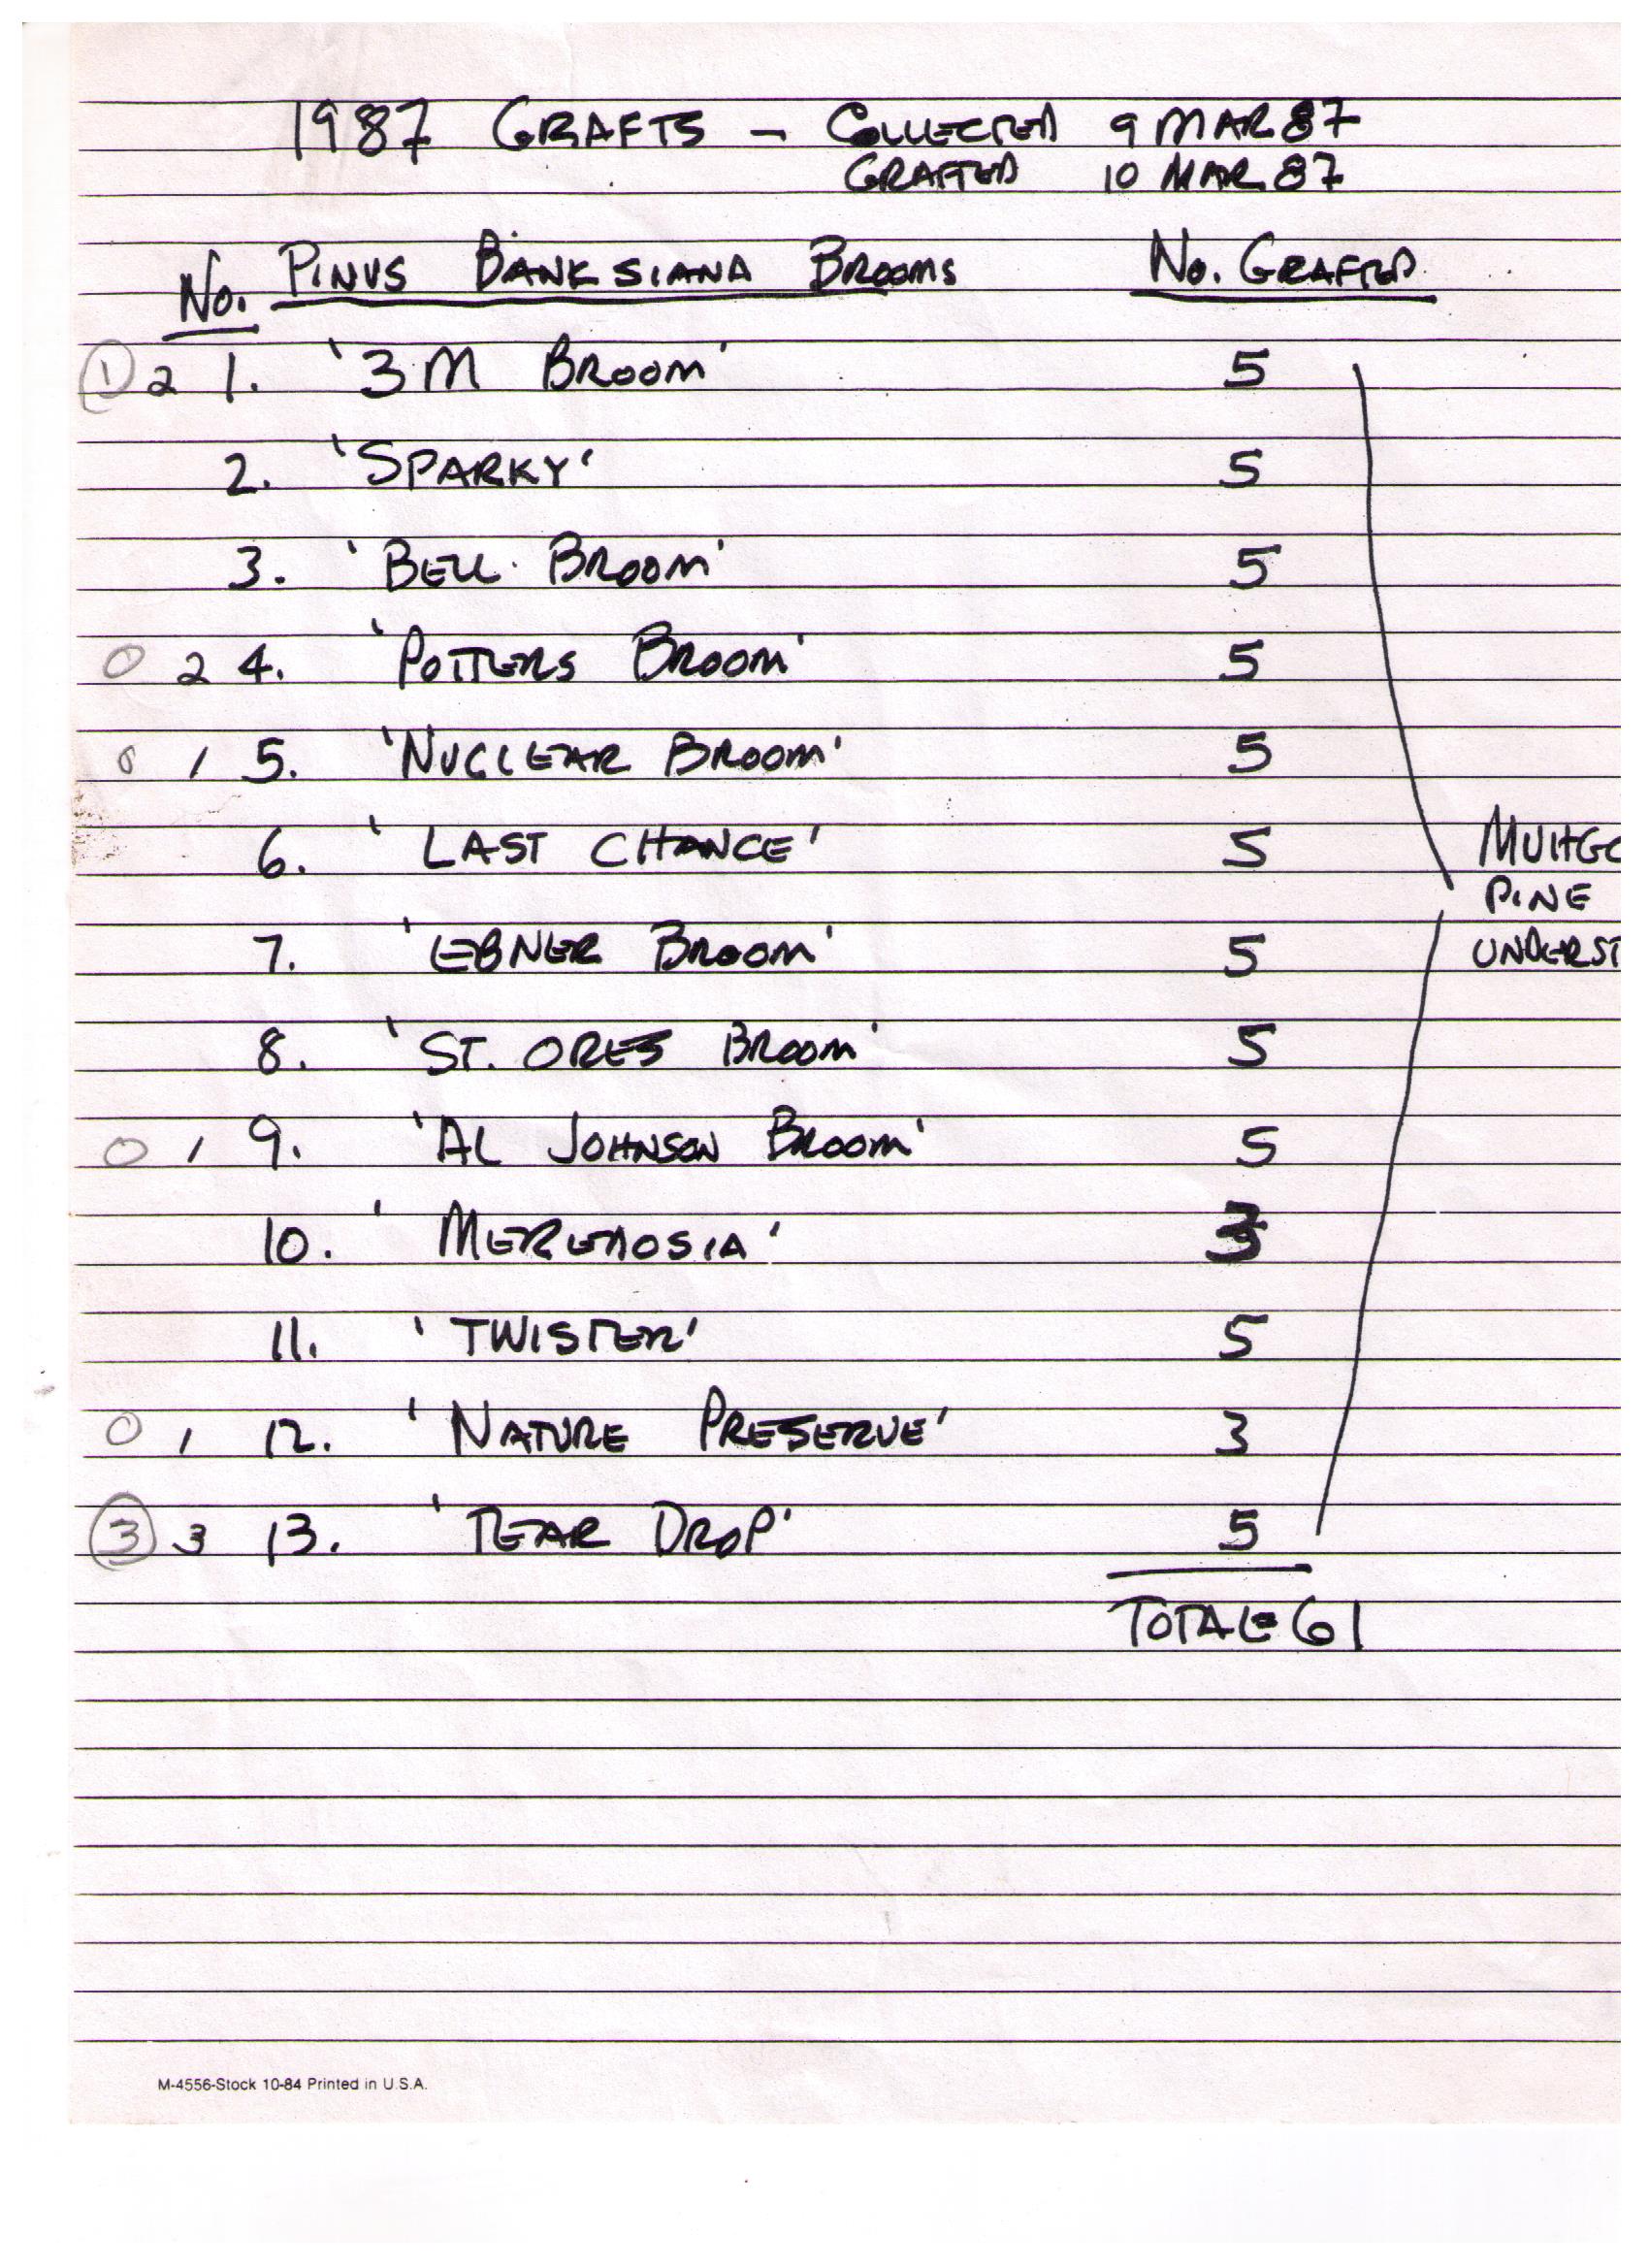 1987 GRAFTS - COLLECTED 9 MAR 87
GRAFTED 10 MAR 87
No. PINUS BANKSIANA BROOMS No. GRAFTED
1 2 1. '3M BROOM' 5
2. 'SPARKY' 5
3. 'BELL BROOM' 5
0 2 4. 'POTTERS BROOM' 5
0 1 5. 'NUCLEAR BROOM' 5
6. 'LAST CHANCE' 5 MUHGO
PINE
7. 'EBNER BROOM' 5 UNDERST
8. 'ST. ORES BROOM' 5
0 1 9. 'AL JOHNSON BROOM' 5
10. 'MEREDOSIA' 3
11. 'TWISTER' 5
0 1 12. 'NATURE PRESERVE' 3
3 3 13. 'TEAR DROP' 5
TOTAL = 61
M-4556-Stock 10-84 Printed in U.S.A.